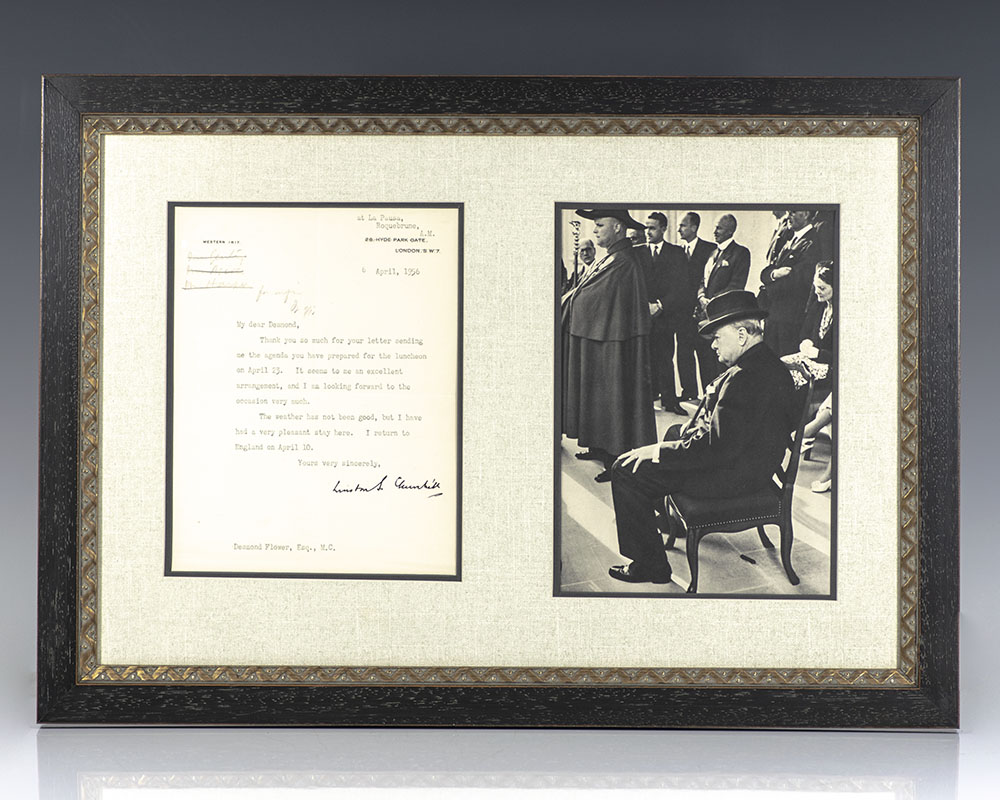 at La Pausa,
Roquebrune,
A.M.
WESTERN 1617.
28, HYDE PARK GATE,
LONDON, S.W.7.
6 April, 1956
My dear Desmond,
Thank you so much for your letter sending
me the agenda you have prepared for the luncheon
on April 23. It seems to me an excellent
arrangement, and I am looking forward to the
occasion very much.
The weather has not been good, but I have
had a very pleasant stay here. I return to
England on April 10.
Yours very sincerely,
Winston S. Churchill
Desmond Flower, Esq., M.C.